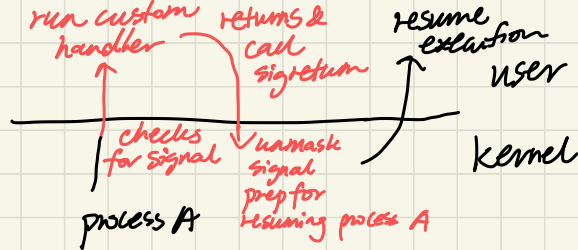 run custom
handler
returns &
call
sigreturn
resume
execution
user
checks
for signal
process A
unmask
signal
prep for
resuming process A
kernel